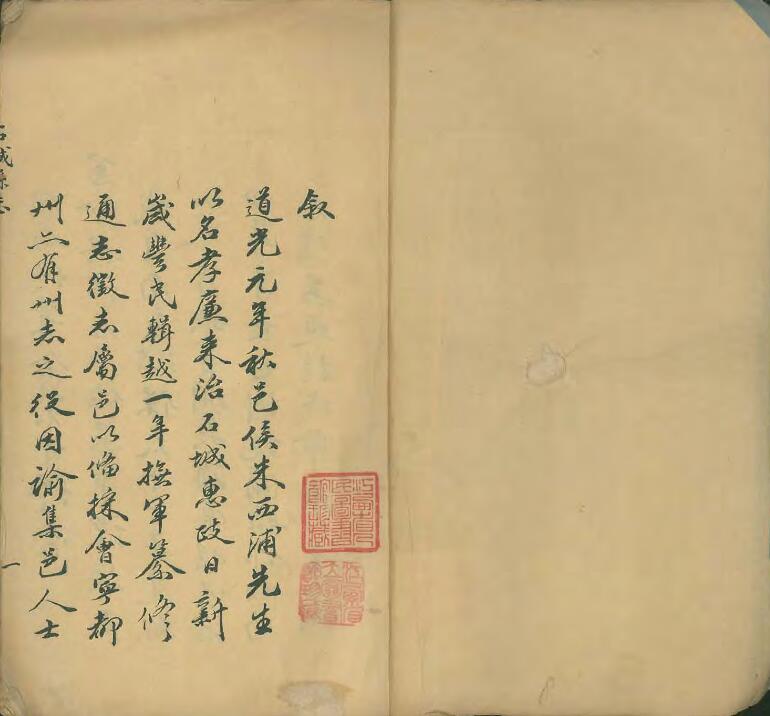 叙
道光元年秋邑侯朱西浦先生
以名孝廉来治石城惠政日新
歲豐民輯越一年撫軍纂修
通志徵志屬邑以備採會寧都
州亦有州志之役因諭集邑人士
石城縣志
一